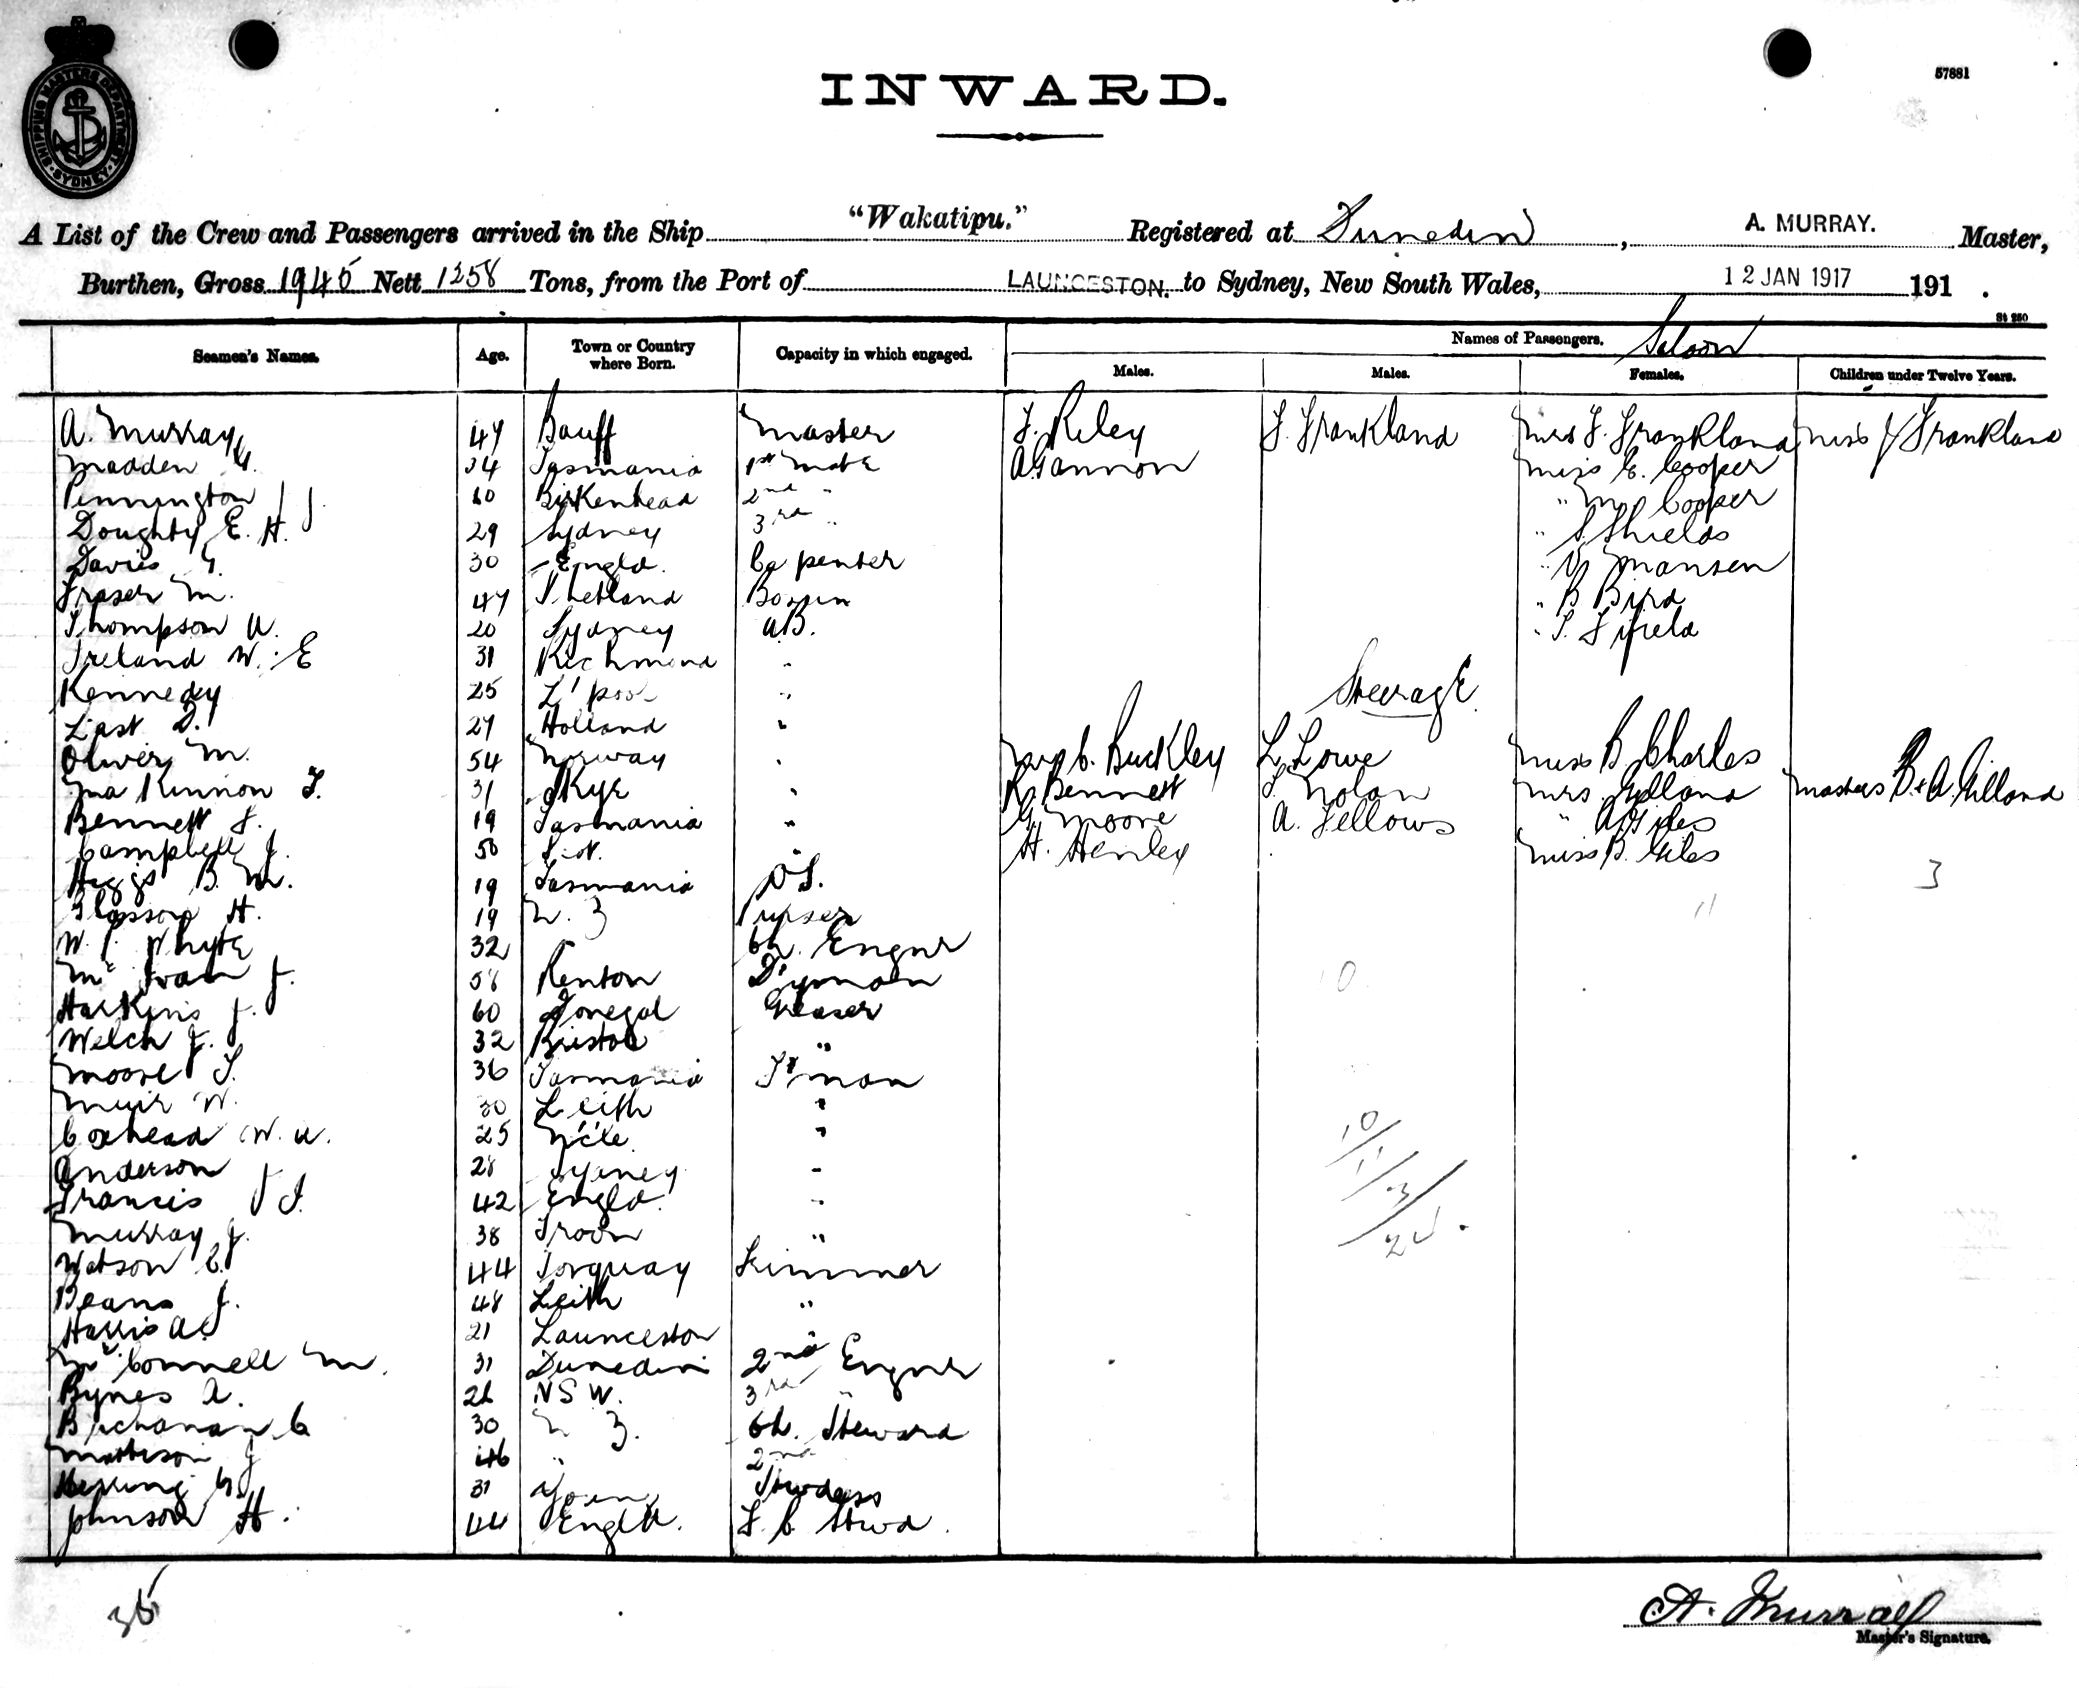 57881
SHIPPING MASTERS DEPARTMENT SYDNEY
INWARD.
A List of the Crew and Passengers arrived in the Ship "Wakatipu." Registered at Dunedin, A. MURRAY. Master,
Burthen, Gross 1945 Nett 1258 Tons, from the Port of LAUNCESTON. to Sydney, New South Wales, 12 JAN 1917 191 .
St 250
Seamen's Names. Age. Town or Country where Born. Capacity in which engaged. Names of Passengers. Saloon
Males. Males. Females. Children under Twelve Years.
A. Murray 47 Banff Master F. Riley F. Frankland Mrs F. Frankland Miss Frankland
Madden G. 34 Tasmania 1st Mate A Gannon Miss E. Cooper
Pennington J. 60 Birkenhead 2nd " " M Cooper
Doughty E. H. 29 Sydney 3rd " " S. Shields
Davies G. 30 Engld. Capenter " V Mansen
Fraser M. 47 Shetland Bosun " B Bird
Thompson A. 20 Sydney A.B. " S. Fifield
Ireland W. E 31 Richmond "
Kennedy 25 L'pool " Steerage
Last D. 27 Holland "
Oliver M. 54 Norway " C. Buckley L Lowe Miss B Charles
Ma Kinnon F. 31 Skye " R Bennett T. Nolan Mrs Gilland Masters B. & A. Gilland
Bennett F. 19 Tasmania " G Moore A. Fellows " A Giles
Campbell J. 50 " H. Henley Miss B. Giles
Higgs B. M. 19 Tasmania O S. 3
Glassop H. 19 N. Z Purser 11
W. P. Whyte 32 Ch. Engnr
Mc Ivan J. 58 Renton D'yman 10
Harkins J. 60 Donegal Greaser
Welch J. 32 Bristol "
Moore T. 36 Tasmania F'man
Muir W. 30 Leith "
Coxhead W. A. 25 N'cle "
Anderson 28 Sydney "
Francis J J. 42 Engld. "
Murray J. 38 Troon "
Watson C. 44 Torquay Trimmer
Beans J. 48 Leith "
Harris A. 21 Launceston
McConnell M. 31 Dunedin 2nd Engnr
Bynes A. 26 NSW. 3rd "
Buchanan C 30 N Z. Ch. Steward
Mattison J 46 " 2nd
Hesking G. 31 Stwdess
Johnson H. 44 Engld. F. C Stwd.
10
11
3
24.
35
A. Murray
Master's Signature.